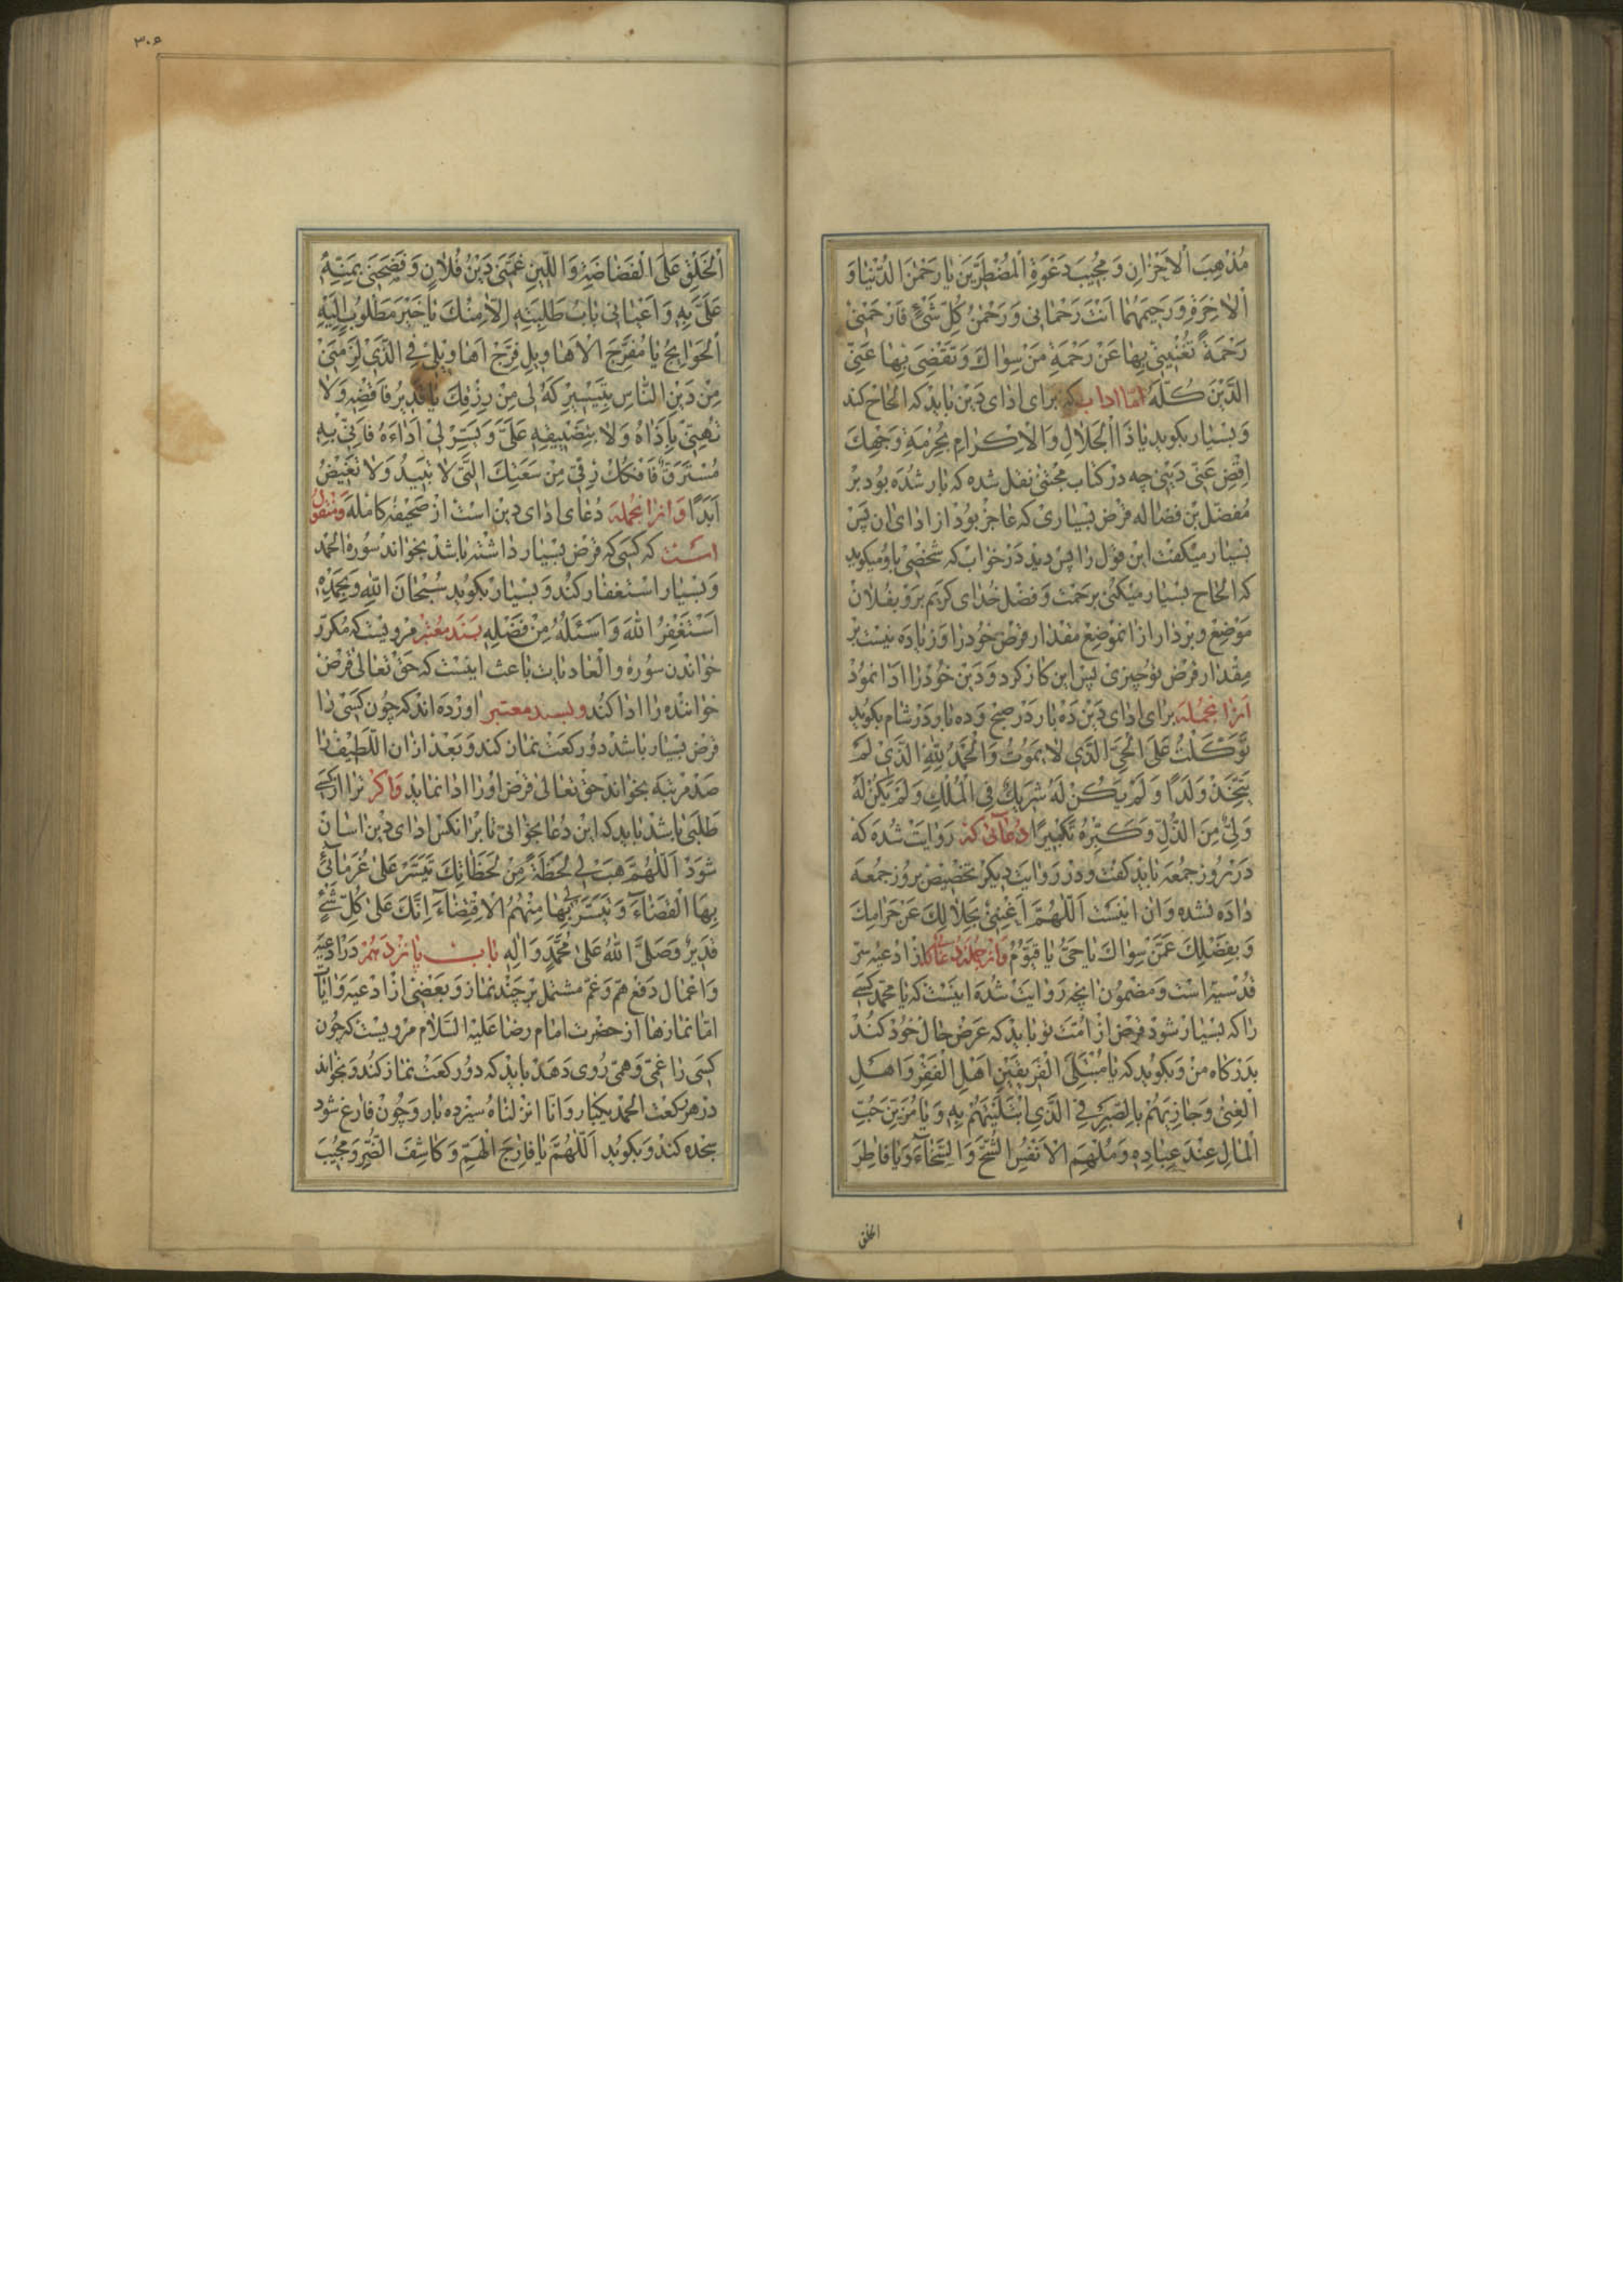 مُذْهِبَ الْاَحْزانِ وَ مُجيبَ دَعْوَةِ الْمُضْطَرّينَ يا رَحْمنَ الدُّنْيا وَ
الْاخِرَةِ وَ رَحيمَهُما اَنْتَ رَحْمانى وَ رَحْمنُ كُلِّ شَىْءٍ فَارْحَمْنى
رَحْمَةً تُغْنينى بِها عَنْ رَحْمَةِ مَنْ سِواكَ وَ تَقْضى بِها عَنِّى
الدَّيْنَ كُلَّهُ امّا ادابى كه براى اداى دين بايد كه الحاح كند
و بسيار بگويد يا ذَا الْجَلالِ وَ الْاِكْرامِ بِحُرْمَةِ وَجْهِكَ
اِقْضِ عَنّى دَيْنى چه در كتاب مجتنى نقل شده كه بار شده بود بر
مفضل بن فضاله قرض بسيارى كه عاجز بود از اداى ان پس
بسيار ميگفت اين قول را پس ديد در خواب كه شخصى باو ميگويد
كه الحاح بسيار ميكنى برحمت و فضل خداى كريم برو بفلان
موضع و بردار از انموضع مقدار قرض خود را و زياده نيست بر
مقدار قرض تو چيزى پس اين كار كرد و دين خود را ادا نمود
از انجمله براى اداى دين ده بار در صبح و ده بار در شام بگويد
تَوَكَّلْتُ عَلَى الْحَىِّ الَّذى لا يَموُتُ وَ الْحَمْدُ لِلّهِ الَّذى لَمْ
يَتَّخِذْ وَلَدًا وَ لَمْ يَكُنْ لَهُ شَريكٌ فِى الْمُلْكِ وَ لَمْ يَكُنْ لَهُ
وَلِىٌّ مِنَ الذُّلِّ وَ كَبِّرْهُ تَكْبيرًا دعائى كه روايت شده كه
در روز جمعه بايد گفت و در روايت ديگر تخصيص بروز جمعه
داده نشده و ان اينست اَللّهُمَّ اَغْنِنى بِحَلالِكَ عَنْ حَرامِكَ
وَ بِفَضْلِكَ عَمَّنْ سِواكَ يا حَىُّ يا قَيُّوُمُ و از جمله دعا از ادعيه سر
قدسيه است و مضمون انچه روايت شده اينست كه يا محمد كسى
را كه بسيار شود قرض از امت تو بايد كه عرض حال خود كند
بدرگاه من و بگويد كه يا مُبْتَلِىَ الْفَريقَيْنِ اَهْلِ الْفَقْرِ وَ اَهْلِ
الْغِنى وَ جازِيَهُمْ بِالصَّبْرِ فِى الَّذى ابْتَلَيْتَهُمْ بِهِ وَ يا مُزَيِّنَ حُبِّ
الْمالِ عِنْدَ عِبادِهِ وَ مُلْهِمَ الْاَنْفُسِ الشُّحَّ وَ السَّخاءَ وَ يا فاطِرَ
الخلق
٣٠٤
الْخَلْقِ عَلَى الْفَضاضَةِ وَ اللّينِ غَمَّنى دَيْنُ فُلانٍ وَ فَضَحَنى بِمَنِّهِ
عَلَىَّ بِهِ وَ اَعْيانى بابُ طَلِبَتِهِ اِلّا مِنْكَ يا خَيْرَ مَطْلوُبٍ اِلَيْهِ
الْحَوايِجُ يا مُفَرِّجَ الْاَهاويلِ فَرِّجْ اَهاويلى فِى الَّذى لَزِمَنى
مِنْ دَيْنِ النّاسِ بِتَيْسيرِكَهُ لى مِنْ رِزْقِكَ يا قَديرُ فَاقْضِهِ وَ لا
تُهِنّى بِاَذاهُ وَ لا بِتَضْييقِهِ عَلَىَّ وَ يَسِّرْ لى اَداءَهُ فَاِنّى بِهِ
مُسْتَرَقٌّ فَافْكُكْ رِقّى مِنْ سَعَتِكَ الَّتى لا تَبيدُ وَ لا تَغيضُ
اَبَدًا و از انجمله دعاى اداى دين است از صحيفه كامله و منقول
است كه كسى كه قرض بسيار داشته باشد بخواند سوره الحمد
و بسيار استغفار كند و بسيار بگويد سُبْحانَ اللهِ وَ بِحَمْدِهِ
اَسْتَغْفِرُ اللهَ وَ اَسْئَلُهُ مِنْ فَضْلِهِ بسند معتبر مرويست كه مكرر
خواندن سوره والعاديات باعث اينست كه حق تعالى قرض
خواننده را ادا كند و بسند معتبر اورده اند كه چون كسى را
قرض بسيار باشد دو ركعت نماز كند و بعد از ان اللطيف را
صد مرتبه بخواند حق تعالى قرض او را ادا نمايد و اگر ترا از كسى
طلبى باشد بايد كه اين دعا بخوانى تا بر انكس اداى دين اسان
شود اَللّهُمَّ هَبْ لى لَحْظَةً مِنْ لَحَظاتِكَ تَيَسَّرْ عَلى غُرَمائى
بِهَا الْقَضاءَ وَ تَيَسَّرَ لى بِها مِنْهُمُ الْاِقْتِضاءَ اِنَّكَ عَلى كُلِّ شَىْءٍ
قَديرٌ وَ صَلَّى اللهُ عَلى مُحَمَّدٍ وَ الِهِ باب پانزدهم در ادعيه
و اعمال دفع هم و غم مشتمل بر چند نماز و بعضى از ادعيه و ايات
اما نمازها از حضرت امام رضا عليه السلام مرويست كه چون
كسى را غمى و همى روى دهد بايد كه دو ركعت نماز كند و بخواند
در هر ركعت الحمد يكبار و انا انزلناه سيزده بار و چون فارغ شود
سجده كند و بگويد اَللّهُمَّ يا فارِجَ الْهَمِّ وَ كاشِفَ الضُّرِّ وَ مُجيبَ